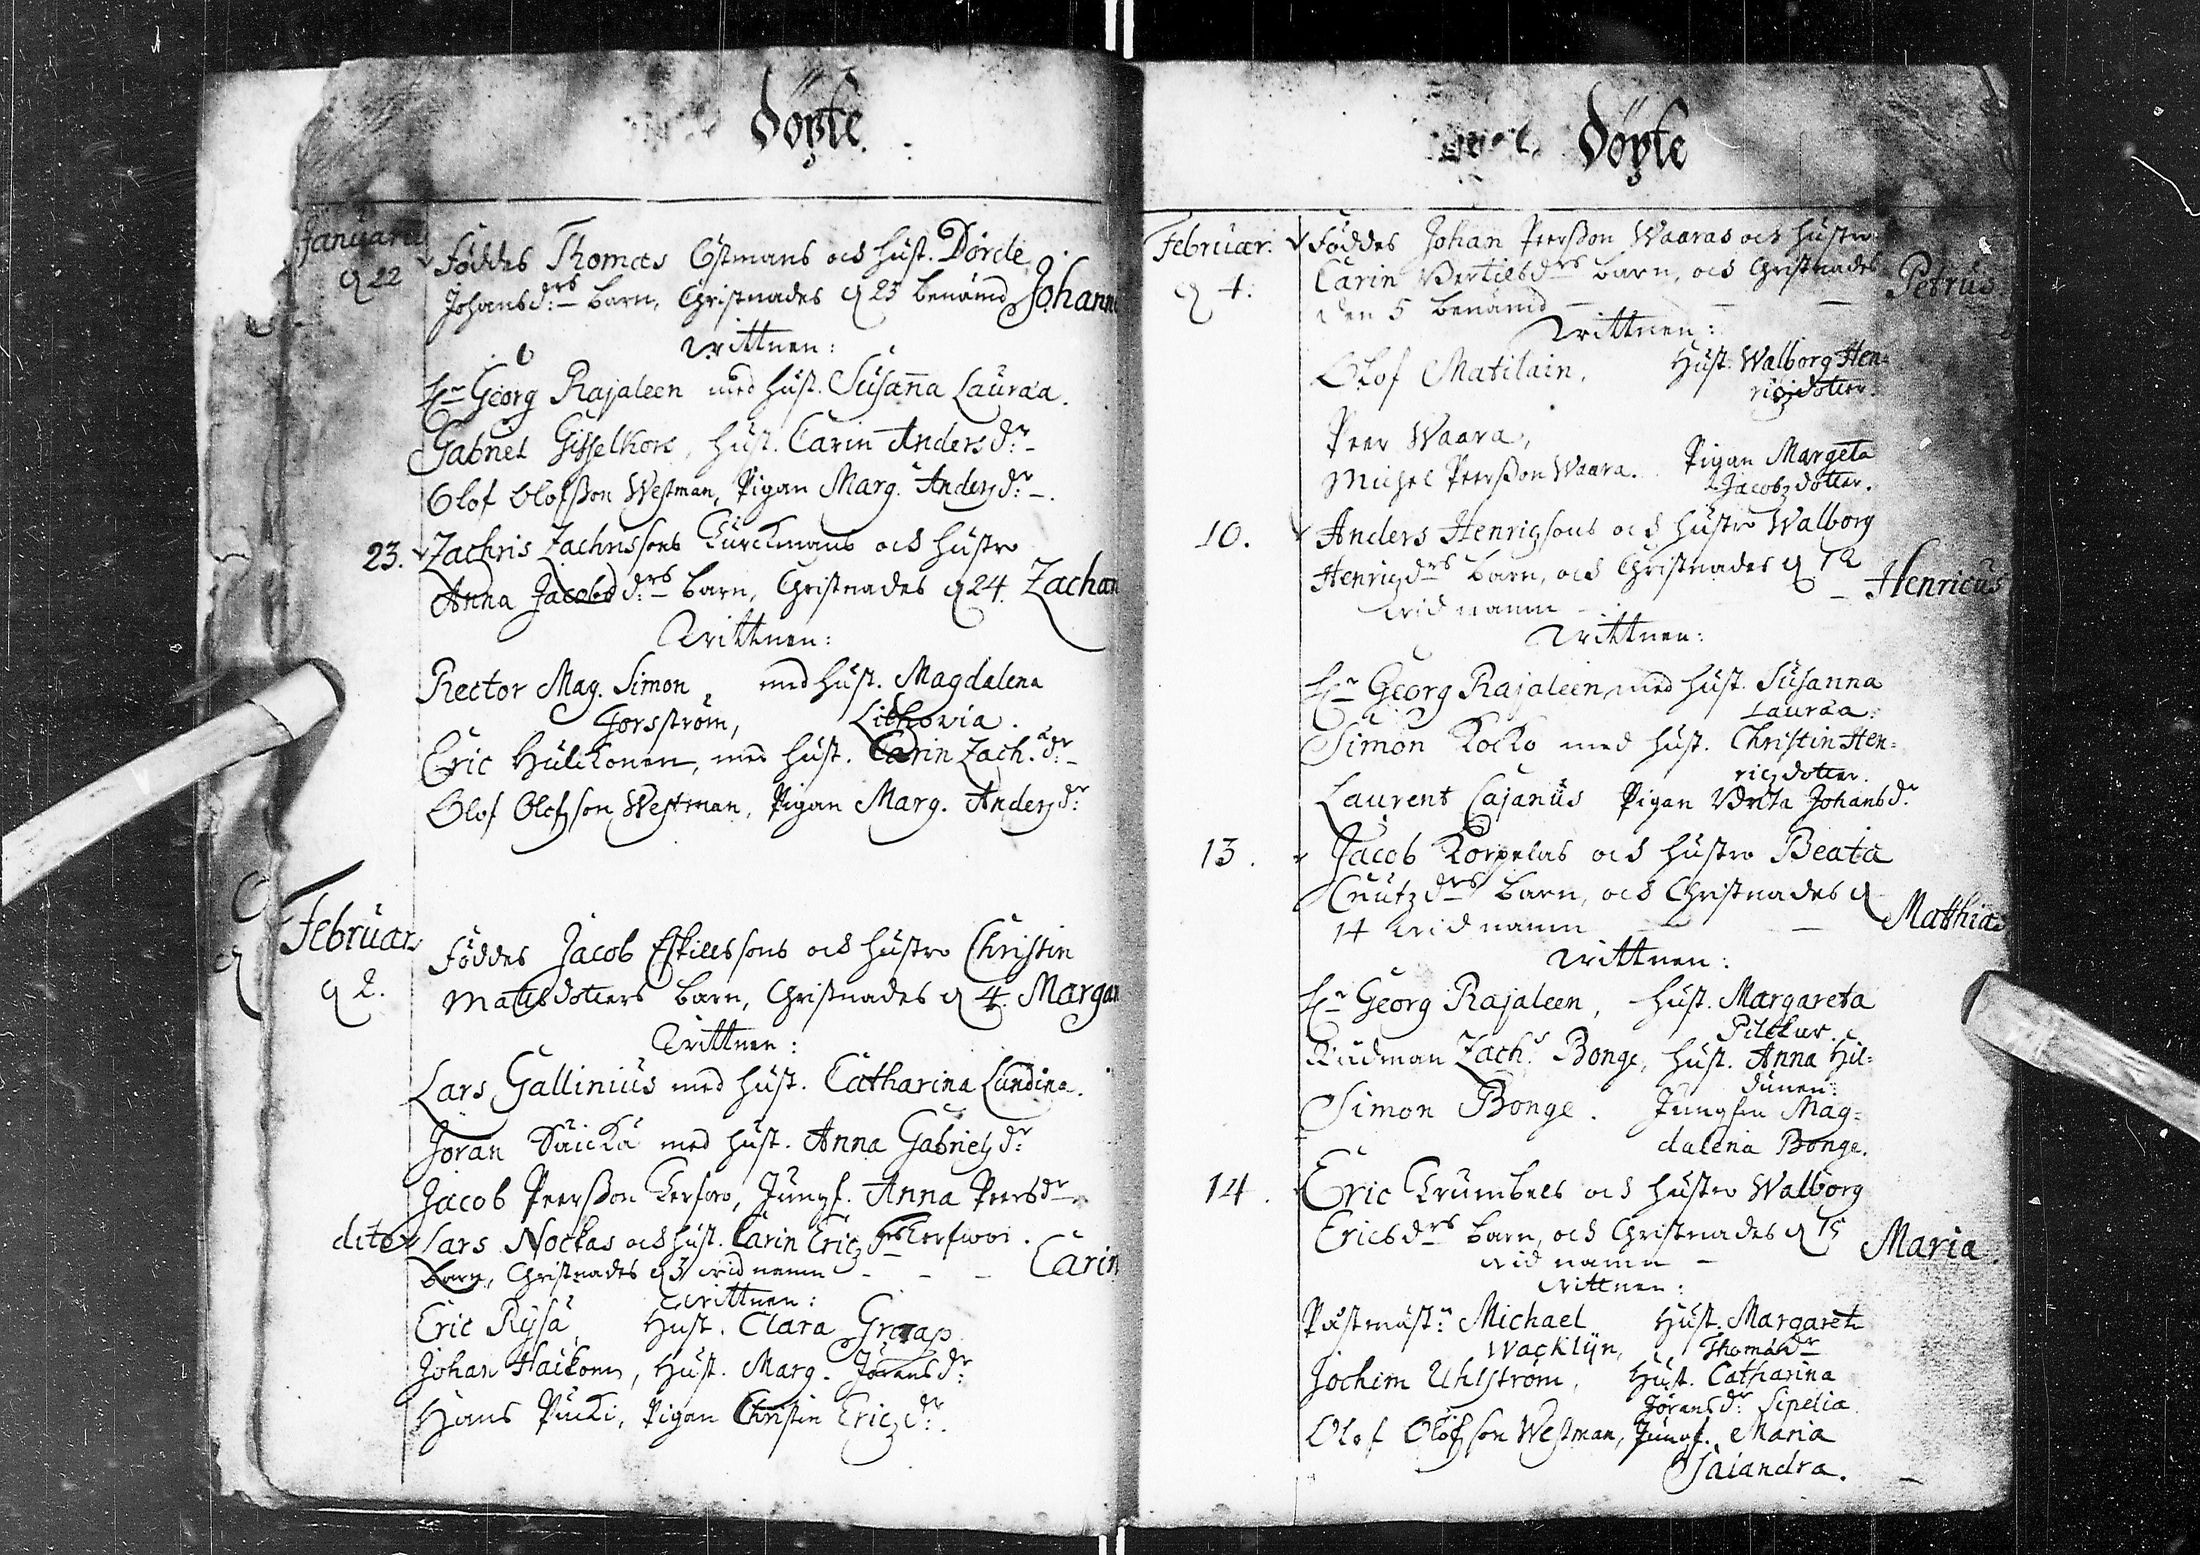 Döpte.
Januarii
d 22
Föddes Thomas Östmans och hust. Dorde
Johansdrs barn, Christnades d 23 benämd Johann
Wittnen:
Hr Georg Rajaleen med hust. Susanna Lauraa.
Gabriel Gisselkors, hust. Carin Andersdr
Olof Olofsson Westman, Pigan Marg. Andersdr.
23. Zachris Zachrissons Kurckmans och hustro
Anna Jacobsdrs barn, Christnades d 24. Zachar
Wittnen:
Rector Mag. Simon, med hust. Magdalena
Forsström, Lithovia.
Eric Hulckonen, med hust. Carin Zach. dr
Olof Olofsson Westman, Pigan Marg. Andersdr
Februar.
d 2.
Föddes Jacob Eskilssons och hustro Christin
Matsdotters barn, Christnades d 4. Margar
Wittnen:
Lars Gallinius med hust. Catharina Lundina.
Jöran Däickä med hust. Anna Gabrielsdr
Jacob Peersson Kerfwo, Jungf. Anna Peersdr
dito Lars Nockas och hust. Carin Ericsdrs Kerfwoi.
barn, Christnades d 3 wid namn - - - Carin
Wittnen:
Eric Rysä, Hust. Clara Graap
Johan Haickonn, Hust. Marg. Jöransdr
Hans Pucki, Pigan Christin Ericsdr.
Döpte
Februar.
d 4.
Föddes Johan Peersson Waaras och hustro
Carin Bertilsdrs barn, och Christnades
den 5 benämd - - - Petrus
Wittnen:
Olof Matilain, Hust. Walborg Hen=
ricsdotter.
Peer Waara,
Michel Peersson Waara. Pigan Margeta
Jacobsdotter.
10. Anders Henricsons och hustro Walborg
Henricsdrs barn, och Christnades d 12
wid namn - Henricus
Wittnen:
Hr Georg Rajaleen, med hust. Susanna
Lauraa.
Simon Kocko med hust. Christin Hen=
ricsdotter.
Laurent Cajanus Pigan Brita Johansdr
13. Jacob Korpelas och hustro Beata
Cnutzdrs barn, och Christnades d
14 wid namn - - Matthia
Wittnen:
Hr Georg Rajaleen, Hust. Margareta
Piltkar
Rudman Zach. Bonge, hust. Anna Hil=
dunen:
Simon Bonge. Jungfru Mag=
dalena Bonge.
14. Eric Krumbels och hustro Walborg
Ericsdrs barn, och Christnades d 15
wid namn - Maria
Wittnen:
Pästmästr Michael Hust. Margareta
Wacklijn, Thomasdr
Jochim Uhlström, Hust. Catharina
Jöransdr Sipelia
Olof Olofson Westman, Jungf. Maria
Saiandra.